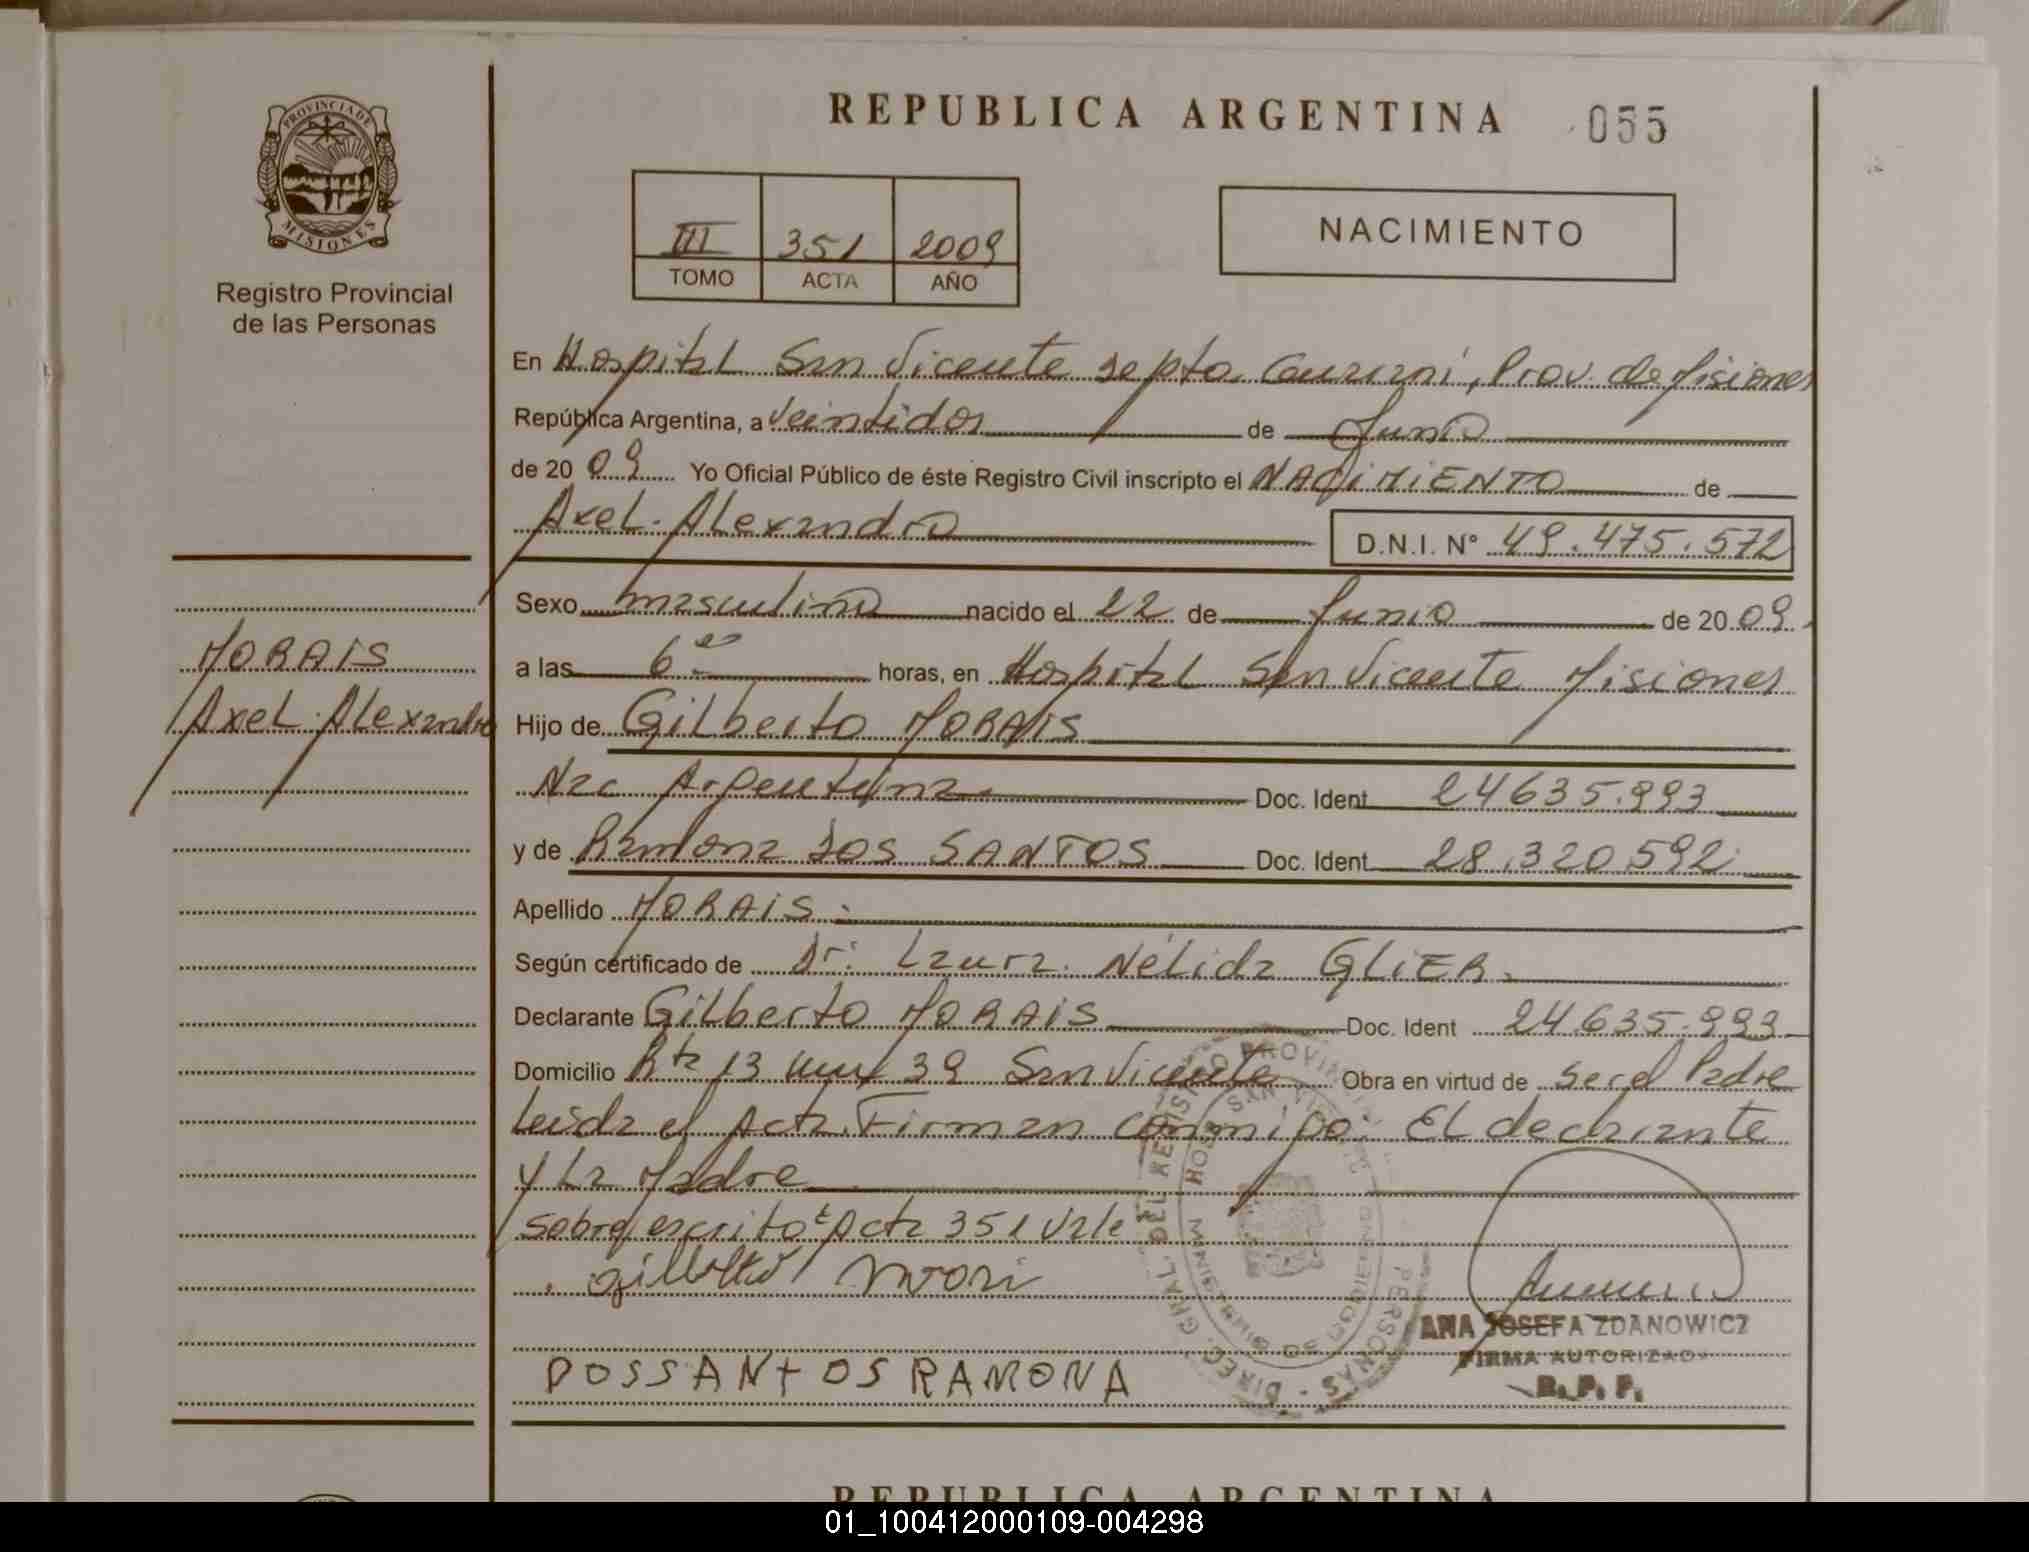 REPUBLICA ARGENTINA 055
PROVINCIA DE
MISIONES
Registro Provincial
de las Personas
III 351 2009
TOMO ACTA AÑO
NACIMIENTO
En Hospital San Vicente Depto Guaraní, Prov. de Misiones
República Argentina, a Veintidos de Junio
de 20 09 Yo Oficial Público de éste Registro Civil inscripto el NACIMIENTO de
Axel Alexandro
D.N.I. N° 49.475.572
Sexo masculino nacido el 22 de Junio de 20 09
a las 6 horas, en Hospital San Vicente Misiones
MORAIS
Axel Alexandro
Hijo de Gilberto MORAIS
Nac Argentina Doc. Ident 24635.993
y de Ramona DOS SANTOS Doc. Ident 28.320.592
Apellido MORAIS
Según certificado de Dr: Laura Nélida GLIER
Declarante Gilberto MORAIS Doc. Ident 24635.993
Domicilio Rta 13 km 39 San Vicente Obra en virtud de ser el Padre
Leída el Acta. Firman conmigo: El declarante
y La Madre
Sobre escrito: Acta 351 Vale
DOSSANTOS RAMONA
ANA JOSEFA ZDANOWICZ
FIRMA AUTORIZAD
R. P. P.
REPUBLICA ARGENTINA
01_100412000109-004298